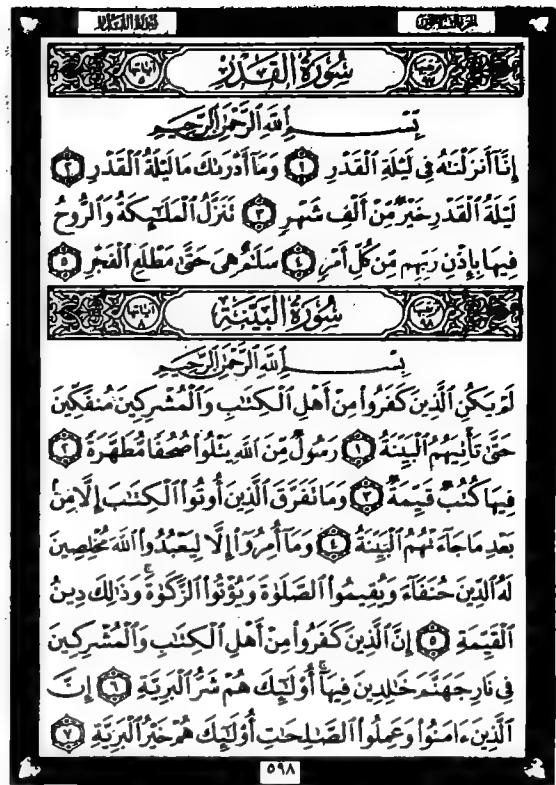 سُورَةُ القَدْرِ
بِسْمِ ٱللَّهِ ٱلرَّحْمَٰنِ ٱلرَّحِيمِ
إِنَّآ أَنزَلْنَٰهُ فِى لَيْلَةِ ٱلْقَدْرِ ١ وَمَآ أَدْرَىٰكَ مَا لَيْلَةُ ٱلْقَدْرِ ٢
لَيْلَةُ ٱلْقَدْرِ خَيْرٌ مِّنْ أَلْفِ شَهْرٍ ٣ تَنَزَّلُ ٱلْمَلَٰٓئِكَةُ وَٱلرُّوحُ
فِيهَا بِإِذْنِ رَبِّهِم مِّن كُلِّ أَمْرٍ ٤ سَلَٰمٌ هِىَ حَتَّىٰ مَطْلَعِ ٱلْفَجْرِ ٥
سُورَةُ البَيِّنَةِ
بِسْمِ ٱللَّهِ ٱلرَّحْمَٰنِ ٱلرَّحِيمِ
لَمْ يَكُنِ ٱلَّذِينَ كَفَرُوا۟ مِنْ أَهْلِ ٱلْكِتَٰبِ وَٱلْمُشْرِكِينَ مُنفَكِّينَ
حَتَّىٰ تَأْتِيَهُمُ ٱلْبَيِّنَةُ ١ رَسُولٌ مِّنَ ٱللَّهِ يَتْلُوا۟ صُحُفًا مُّطَهَّرَةً ٢
فِيهَا كُتُبٌ قَيِّمَةٌ ٣ وَمَا تَفَرَّقَ ٱلَّذِينَ أُوتُوا۟ ٱلْكِتَٰبَ إِلَّا مِنۢ
بَعْدِ مَا جَآءَتْهُمُ ٱلْبَيِّنَةُ ٤ وَمَآ أُمِرُوٓا۟ إِلَّا لِيَعْبُدُوا۟ ٱللَّهَ مُخْلِصِينَ
لَهُ ٱلدِّينَ حُنَفَآءَ وَيُقِيمُوا۟ ٱلصَّلَوٰةَ وَيُؤْتُوا۟ ٱلزَّكَوٰةَ ۚ وَذَٰلِكَ دِينُ
ٱلْقَيِّمَةِ ٥ إِنَّ ٱلَّذِينَ كَفَرُوا۟ مِنْ أَهْلِ ٱلْكِتَٰبِ وَٱلْمُشْرِكِينَ
فِى نَارِ جَهَنَّمَ خَٰلِدِينَ فِيهَآ ۚ أُو۟لَٰٓئِكَ هُمْ شَرُّ ٱلْبَرِيَّةِ ٦ إِنَّ
ٱلَّذِينَ ءَامَنُوا۟ وَعَمِلُوا۟ ٱلصَّٰلِحَٰتِ أُو۟لَٰٓئِكَ هُمْ خَيْرُ ٱلْبَرِيَّةِ ٧
٥٩٨